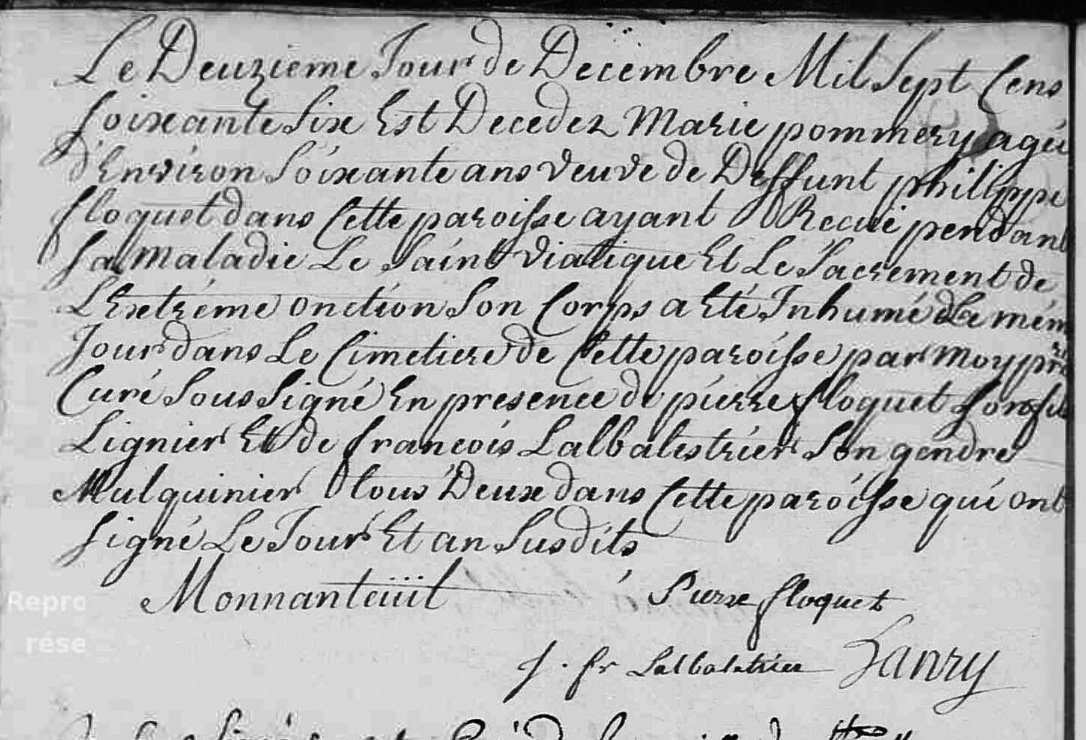 Le Deuzieme Jour de Decembre Mil Sept Cens
Soixante Six Est Decedez Marie pommery agée
d'Environ Soixante ans veuve de Deffunt philippe
floquet dans Cette paroisse ayant Recue pendant
Sa Maladie Le Saint Viatique Et Le Sacrement de
L'Extréme onction Son Corps a Eté Inhumé Le mém
Jour dans Le Cimetiere de Cette paroisse par moy pre
Curé Sous Signé En presence de pierre floquet son fils
Lignier Et de francois Lalbalestrier Son gendre
Mulquinier tous Deux dans Cette paroisse qui ont
Signé Le Jour Et an Susdits
Monnanteüil Pierre floquet
j. fr Lalbalatrier Lanry
Repro
rése